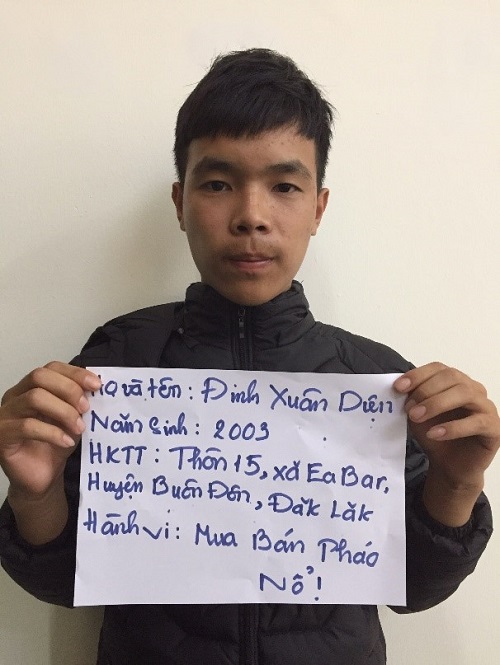 Họ và tên : Đinh Xuân Diện
Năm sinh : 2003
HKTT : Thôn 15, xã Ea Bar,
Huyện Buôn Đôn, Đăk Lăk
Hành vi : Mua Bán Pháo
Nổ !